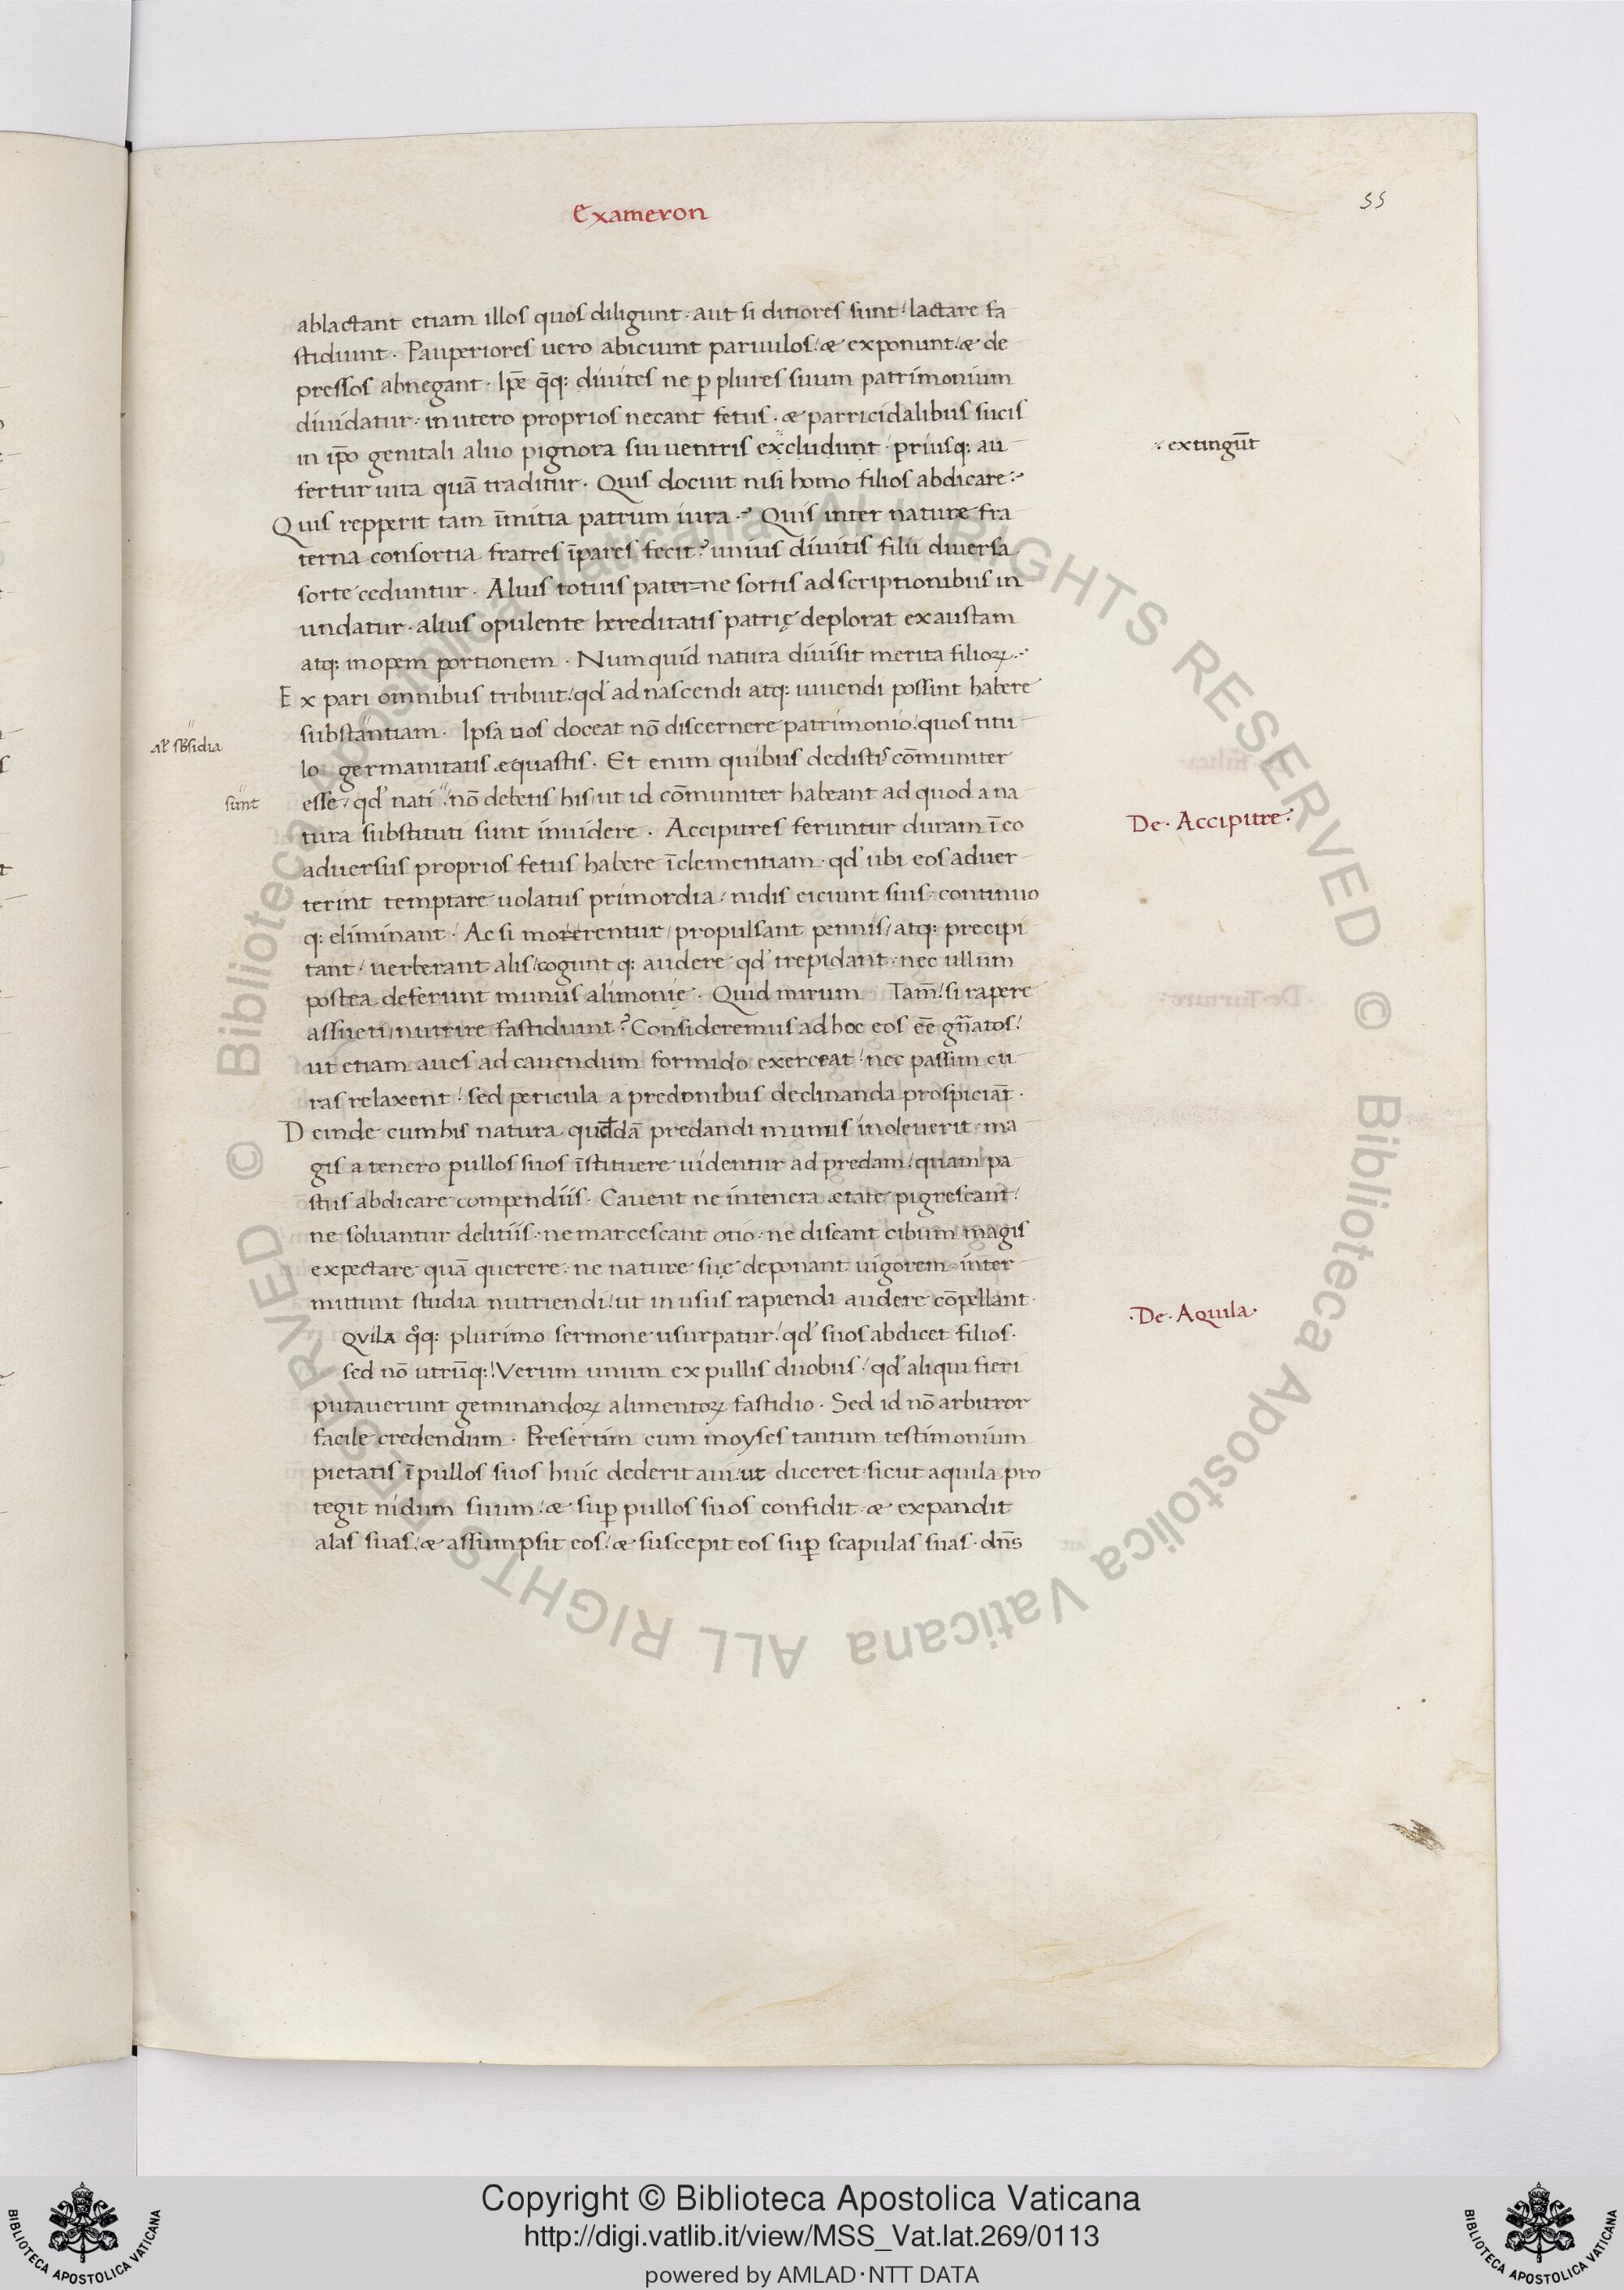 Exameron
55
ablactant etiam illos quos diligunt · aut si ditiores sunt / lactare fa
stidiunt · Pauperiores uero abiciunt paruulos / & exponunt / & de
pressos abnegant · Ipe᷒ q̄q: diuites ne p̱ plures suum patrimonium
diuidatur · in utero proprios necant fetus · & parricidalibus sucis
in ip̄o genitali aluo pignora sui uentris excludunt · priusq: au
fertur uita quā traditur · Quis docuit nisi homo filios abdicare ·
Quis repperit tam īmitia patrum iura · Quis inter nature fra
terna consortia fratres īpares fecit? unius diuitis filii diuersa
sorte ceduntur · Alius totius pater=ne sortis adscriptionibus in
undatur · alius opulente hereditatis patrię deplorat exaustam
atq: inopem portionem · Numquid natura diuisit merita filioꝝ ·
Ex pari omnibus tribuit / qd' ad nascendi atq: uiuendi possint habere
substantiam · Ipsa uos doceat nō discernere patrimonio / quos titu
lo germanitatis ęquastis · Et enim quibus dedistis cōmuniter
esse / qd' nati / nō debetis his / ut id cōmuniter habeant ad quod a na
tura substituti sunt inuidere · Accipitres feruntur duram ī eo
aduersus proprios fetus habere īclementiam · qd' ubi eos aduer
terint temptare uolatus primordia / nidis eiciunt suis · continuo
q: eliminant · Ac si morerentur / propulsant pennis / atq: precipi
tant / uerberant alis / cogunt q: audere qd' trepidant · nec ullum
postea deferunt munus alimonię · Quid mirum Tam̄ / si rapere
assueti / nutrire fastidiunt? Consideremus ad hoc eos eē gn̄atos /
ut etiam aues ad cauendum formido exerceat / nec passim cu
ras relaxent / sed pericula a predonibus declinanda prospiciāt ·
Deinde cum his natura quędā predandi munus inoleuerit · ma
gis a tenero pullos suos īstituere uidentur ad predam / quam pa
stus abdicare compendiis · Cauent ne in tenera ętate pigrescant /
ne soluantur delitiis · ne marcescant otio · ne discant cibum magis
expectare quā querere · ne nature suę deponant uigorem · inter
mittunt studia nutriendi / ut in usus rapiendi audere cōpellant ·
QVILA q̊q: plurimo sermone usurpatur / qd' suos abdicet filios ·
sed nō utrūq: / Verum unum ex pullis duobus / qd' aliqui fieri
putauerunt geminandoꝝ alimentoꝝ fastidio · Sed id nō arbitror
facile credendum · Presertim cum moyses tantum testimonium
pietatis ī pullos suos huic dederit aui / ut diceret · sicut aquila pro
tegit nidum suum / & sup̱ pullos suos confidit · & expandit
alas suas / & assumpsit eos / & suscepit eos sup̱ scapulas suas · dn̄s
extingūt
al' sb̄sidia
sunt
De · Accipitre ·
· De · Aquila ·
© Biblioteca Apostolica Vaticana ALL RIGHTS RESERVED © Biblioteca Apostolica Vaticana ALL RIGHTS RESERVED
Copyright © Biblioteca Apostolica Vaticana
http://digi.vatlib.it/view/MSS_Vat.lat.269/0113
powered by AMLAD·NTT DATA
BIBLIOTECA APOSTOLICA VATICANA
BIBLIOTECA APOSTOLICA VATICANA